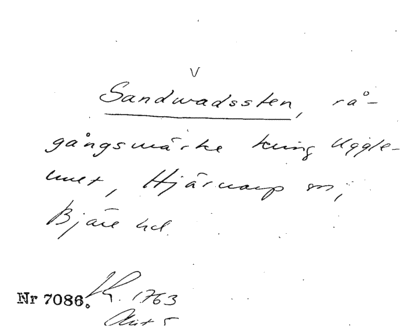 v
Sandwadssten, rå-
gångsmärke kring Uggle-
hult, Hjärnarp sn,
Bjäre hd
Nr 7086. 1763
Akt 5